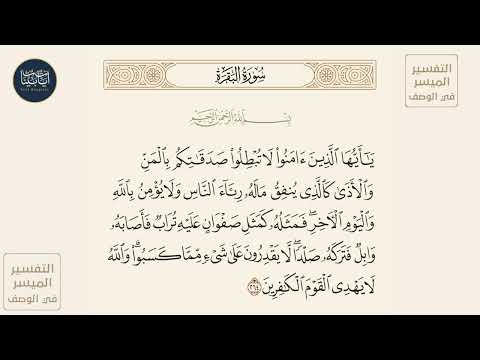 التفسير
الميسر
في الوصف
آيات بينات
سُورَةُ البَقَرَةِ
بِسْمِ اللَّهِ الرَّحْمَنِ الرَّحِيمِ
يَـٰٓأَيُّهَا ٱلَّذِينَ ءَامَنُوا۟ لَا تُبْطِلُوا۟ صَدَقَـٰتِكُم بِٱلْمَنِّ
وَٱلْأَذَىٰ كَٱلَّذِى يُنفِقُ مَالَهُۥ رِئَآءَ ٱلنَّاسِ وَلَا يُؤْمِنُ بِٱللَّهِ
وَٱلْيَوْمِ ٱلْـَٔاخِرِ ۖ فَمَثَلُهُۥ كَمَثَلِ صَفْوَانٍ عَلَيْهِ تُرَابٌ فَأَصَابَهُۥ
وَابِلٌ فَتَرَكَهُۥ صَلْدًا ۖ لَّا يَقْدِرُونَ عَلَىٰ شَىْءٍ مِّمَّا كَسَبُوا۟ ۗ وَٱللَّهُ
لَا يَهْدِى ٱلْقَوْمَ ٱلْكَـٰفِرِينَ ٢٦٤
التفسير
الميسر
في الوصف